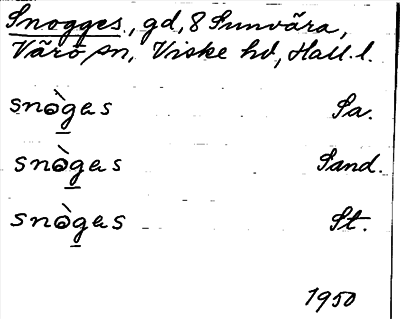 Snogges, gd, 8 Sunvära,
Värö sn, Viske hd, Hall. l.
snò̱gas Sa.
snò̱gas Sand.
snò̱gas St.
1950